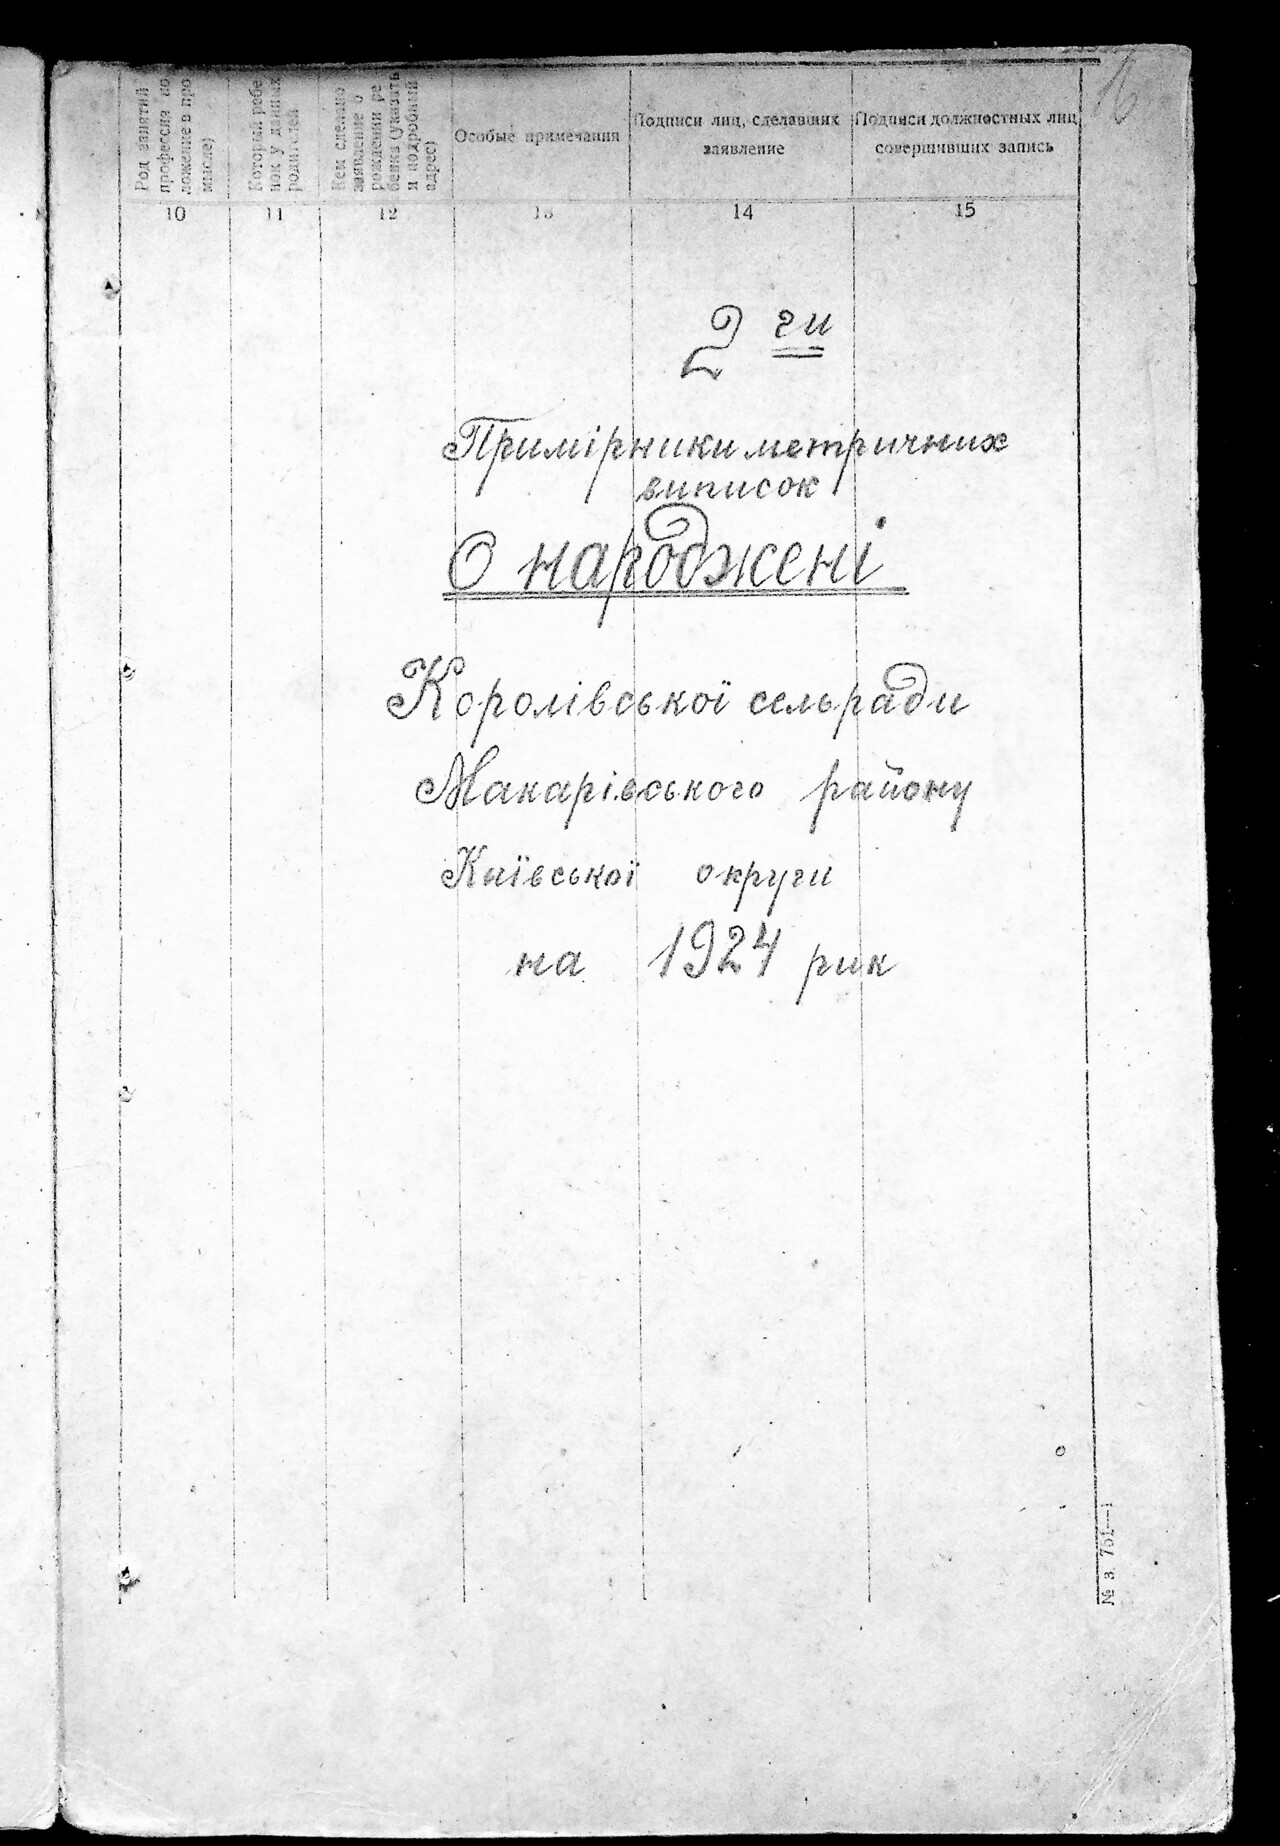 Род занятий
профессия по
ложение в про
мысле)
Который ребе
нок у данных
родителей
Кем сделано
заявление о
рождении ре
бенка (указать
и подробный
адрес)
Особые примечания
Подписи лиц, сделавших
заявление
Подписи должностных лиц
совершивших запись
10 11 12 13 14 15
2 ги
Примірники метричних
виписок
О народжені
Королівської сельради
Макарівського району
Київської округи
на 1924 рик
№ 3. 751—1